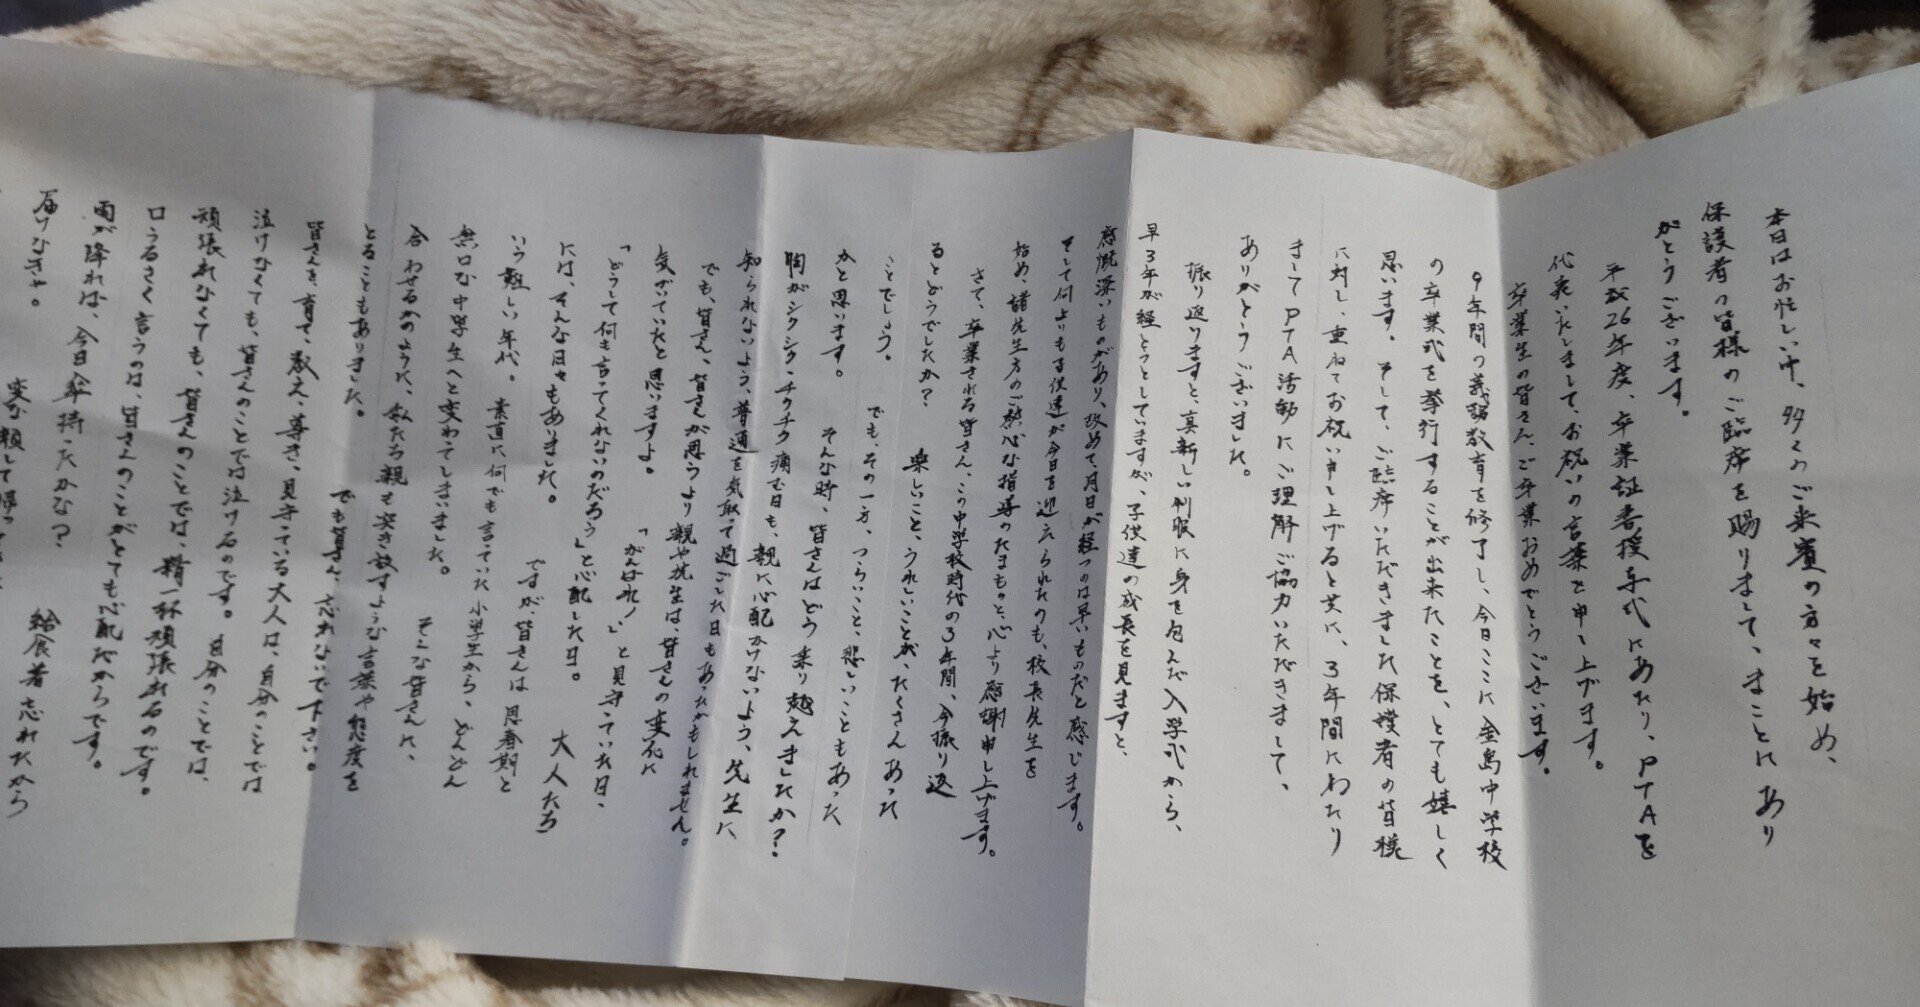 本日はお忙しい中、多くのご来賓の方々を始め、
保護者の皆様のご臨席を賜りまして、まことにあり
がとうございます。
平成26年度、卒業証書授与式にあたり、PTAを
代表いたしまして、お祝いの言葉と申し上げます。
卒業生の皆さん、ご卒業おめでとうございます。
9年間の義務教育を修了し、今日ここに金島中学校
の卒業式を挙行することが出来たことを、とても嬉しく
思います。そして、ご臨席いただきました保護者の皆様
に対し、重ねてお祝い申し上げると共に、3年間にわたり
ましてPTA活動にご理解ご協力いただきまして、
ありがとうございました。
振り返りますと、真新しい制服に身を包んだ入学式から、
早3年が経とうとしていますが、子供達の成長を見ますと、
感慨深いものがあり、改めて、月日が経つのは早いものだと感じます。
そして何よりも子供達が今日を迎えられたのも、校長先生を
始め、諸先生方のご熱心な指導のたまものと、心より感謝申し上げます。
さて、卒業される皆さん、この中学校時代の3年間、今振り返
るとどうでしたか? 楽しいこと、うれしいことが、たくさんあった
ことでしょう。 でも、その一方、つらいこと、悲しいこともあった
かと思います。 そんな時、皆さんはどう乗り越えましたか?
胸がシクシク・チクチク痛む日も、親に心配かけないよう、先生に
知られないよう、普通を気取って過ごした日もあったかもしれません。
でも、皆さん、皆さんが思うより親や先生は、皆さんの変化に
気がついていたと思いますよ。 「がんばれ!」と見守っていた日、
「どうして何も言ってくれないのだろう」と心配した日。 大人たち
には、そんな日々もありました。 ですが、皆さんは思春期と
いう難しい年代。 素直に何でも言っていた小学生から、どんどん
無口な中学生へと変わってしまいました。 そんな皆さんに、
合わせるかのように、私たち親も突き放すような言葉や態度を
とることもありました。 でも皆さん、忘れないで下さい。
皆さんを、育て、教え、導き、見守っている大人は、自分のことでは
泣けなくても、皆さんのことでは泣けるのです。 自分のことでは、
頑張れなくても、皆さんのことでは、精一杯頑張れるのです。
口うるさく言うのは、皆さんのことがとても心配だからです。
雨が降れば、今日傘持ったかな? 給食着忘れたから
届けなきゃ。 変な顔して帰って